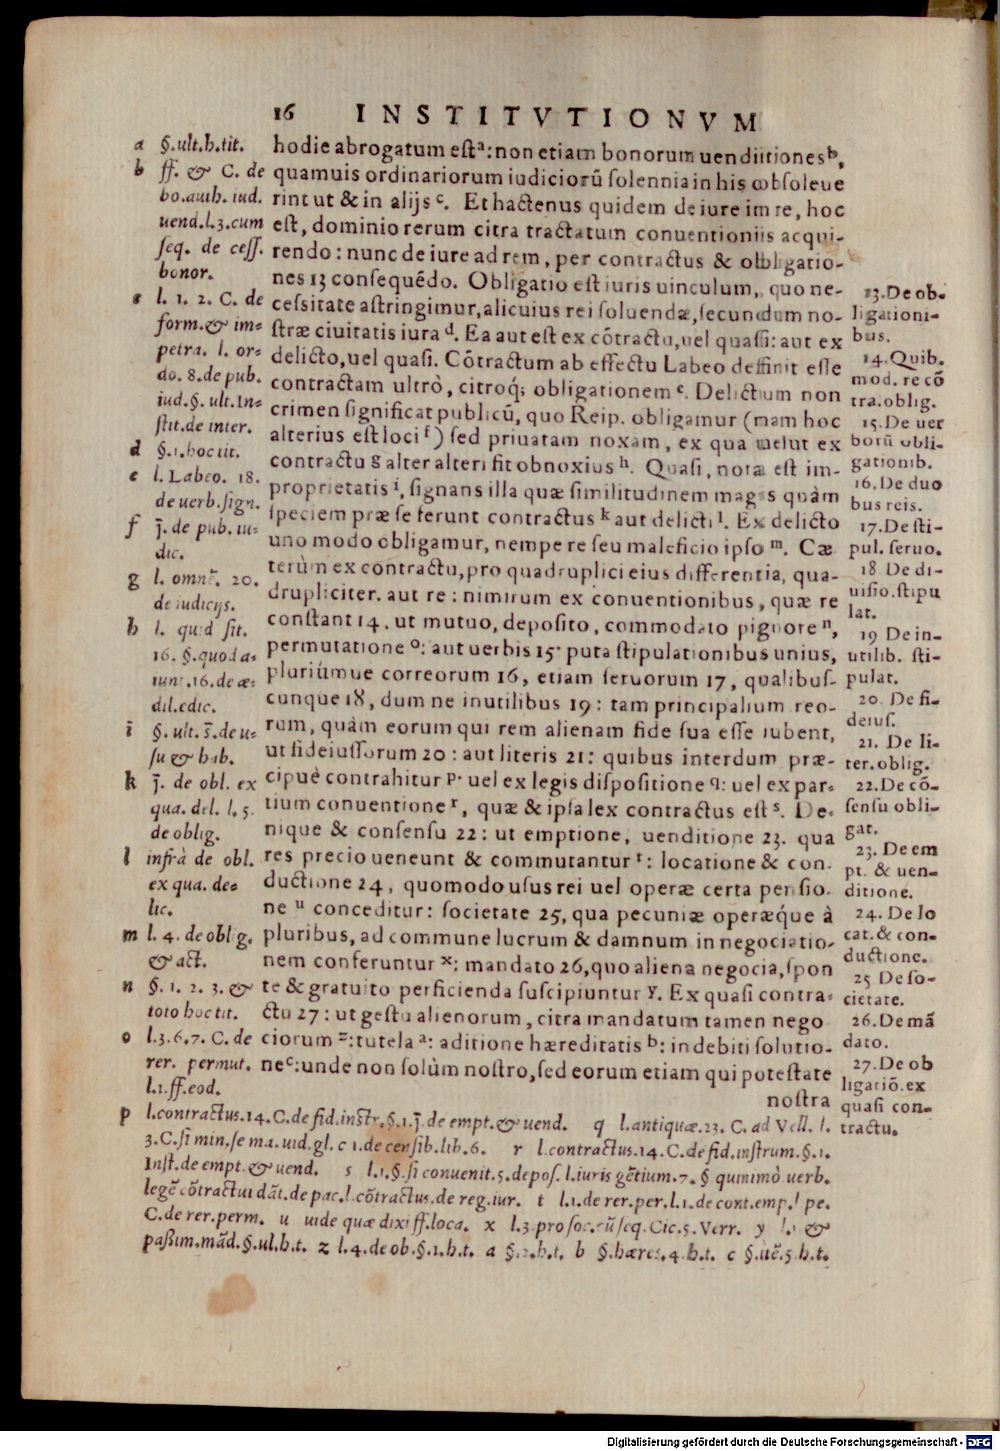 16 INSTITVTIONVM
hodie abrogatum eſt a: non etiam bonorum uenditiones b,
quamuis ordinariorum iudiciorū ſolennia in his obſoleue
rint ut & in alijs c. Et hactenus quidem de iure in re, hoc
eſt, dominio rerum citra tractatum conuentioniis acqui-
rendo: nunc de iure ad rem, per contractus & obligatio-
nes 13 conſequēdo. Obligatio eſt iuris uinculum, quo ne-
ceſſitate aſtringimur, alicuius rei ſoluendæ, ſecundum no-
ſtræ ciuitatis iura d. Ea aut eſt ex cōtractu, uel quaſi: aut ex
delicto, uel quaſi. Cōtractum ab effectu Labeo deffinit eſſe
contractam ultrò, citroq́; obligationem e. Delictum non
crimen ſignificat publicū, quo Reip. obligamur (nam hoc
alterius eſt loci f) ſed priuatam noxam, ex qua uelut ex
contractu g alter alteri fit obnoxius h. Quaſi, nota eſt im-
proprietatis i, ſignans illa quæ ſimilitudinem magis quàm
ſpeciem præ ſe ferunt contractus k aut delicti l. Ex delicto
uno modo obligamur, nempe re ſeu maleficio ipſo m. Cæ
terùm ex contractu, pro quadruplici eius differentia, qua-
drupliciter. aut re: nimirum ex conuentionibus, quæ re
conſtant 14. ut mutuo, depoſito, commodato pignore n,
permutatione o: aut uerbis 15. puta ſtipulationibus unius,
pluriúmue correorum 16, etiam ſeruorum 17, qualibuſ-
cunque 18, dum ne inutilibus 19: tam principalium reo-
rum, quàm eorum qui rem alienam fide ſua eſſe iubent,
ut fideiuſſorum 20: aut literis 21: quibus interdum præ-
cipuè contrahitur p. uel ex legis diſpoſitione q: uel ex par-
tium conuentione r, quæ & ipſa lex contractus eſt s. De-
nique & conſenſu 22: ut emptione, uenditione 23. qua
res precio ueneunt & commutantur t: locatione & con-
ductione 24, quomodo uſus rei uel operæ certa penſio-
ne u conceditur: ſocietate 25, qua pecuniæ operæq́ue à
pluribus, ad commune lucrum & damnum in negociatio-
nem conferuntur x: mandato 26, quo aliena negocia, ſpon
te & gratuito perficienda ſuſcipiuntur y. Ex quaſi contra-
ctu 27: ut geſtu alienorum, citra mandatum tamen nego
ciorum z: tutela a: aditione hæreditatis b: indebiti ſolutio-
ne c: unde non ſolùm noſtro, ſed eorum etiam qui poteſtate
noſtra
a §.ult.h.tit.
b ff. & C. de
bo.auth. iud.
uend.l.3.cum
ſeq. de ceſſ.
bonor.
c l. 1. 2. C. de
form.& im-
petra. l. or-
do. 8.de pub.
iud.§. ult.In-
ſtit.de inter.
d §.1.hoc tit.
e l. Labeo. 18.
de uerb.ſign.
f j̄. de pub. iu-
dic.
g l. omnē. 20.
de iudicijs.
h l. quid ſit.
16. §.quod a-
iunt.16.de æ-
dil.edic.
i §. ult. s̄.de u-
ſu & hab.
k j̄. de obl. ex
qua. del. l. 5.
de oblig.
l infrà de obl.
ex qua. de-
lic.
m l. 4. de oblig.
& act.
n §. 1. 2. 3. &
toto hoc tit.
o l.3.6.7. C. de
rer. permut.
l.1.ff.eod.
13.De ob-
ligationi-
bus.
14.Quib.
mod. re cō
tra.oblig.
15.De uer
borū obli-
gationib.
16.De duo
bus reis.
17.De ſti-
pul. ſeruo.
18 De di-
uiſio.ſtipu
lat.
19 De in-
utilib. ſti-
pulat.
20. De fi-
deiuſ.
21. De li-
ter.oblig.
22.De cō-
ſenſu obli-
gat.
23. De em
pt. & uen-
ditione.
24. De lo
cat.& con-
ductione.
25 De ſo-
cietate.
26.De mā
dato.
27.De ob
ligatiō.ex
quaſi con-
tractu.
p l.contractus.14.C.de fid.inſtr.§.1.j̄.de empt.& uend. q l.antiquæ.23. C. ad Vell. l.
3.C.ſi min.ſe ma.uid.gl. c 1.de cenſib.lib.6. r l.contractus.14.C.de fid.inſtrum.§.1.
Inſt.de empt.& uend. s l.1.§.ſi conuenit.5.depoſ.l.iuris gētium.7.§ quinimò uerb.
legē cōtractui dāt.de pac.l.cōtractus.de reg.iur. t l.1.de rer.per.l.1.de cont.emp.l pe.
C.de rer.perm. u uide quæ dixi ff.loca. x l.3.pro ſoc.cū ſeq.Cic.5.Verr. y l.1 &
paßim.mād.§.ul.h.t. z l.4.de ob.§.1.h.t. a §.2.h.t. b §.hæres.4.h.t. c §.itē.5.h.t.
Digitalisierung gefördert durch die Deutsche Forschungsgemeinschaft - DFG